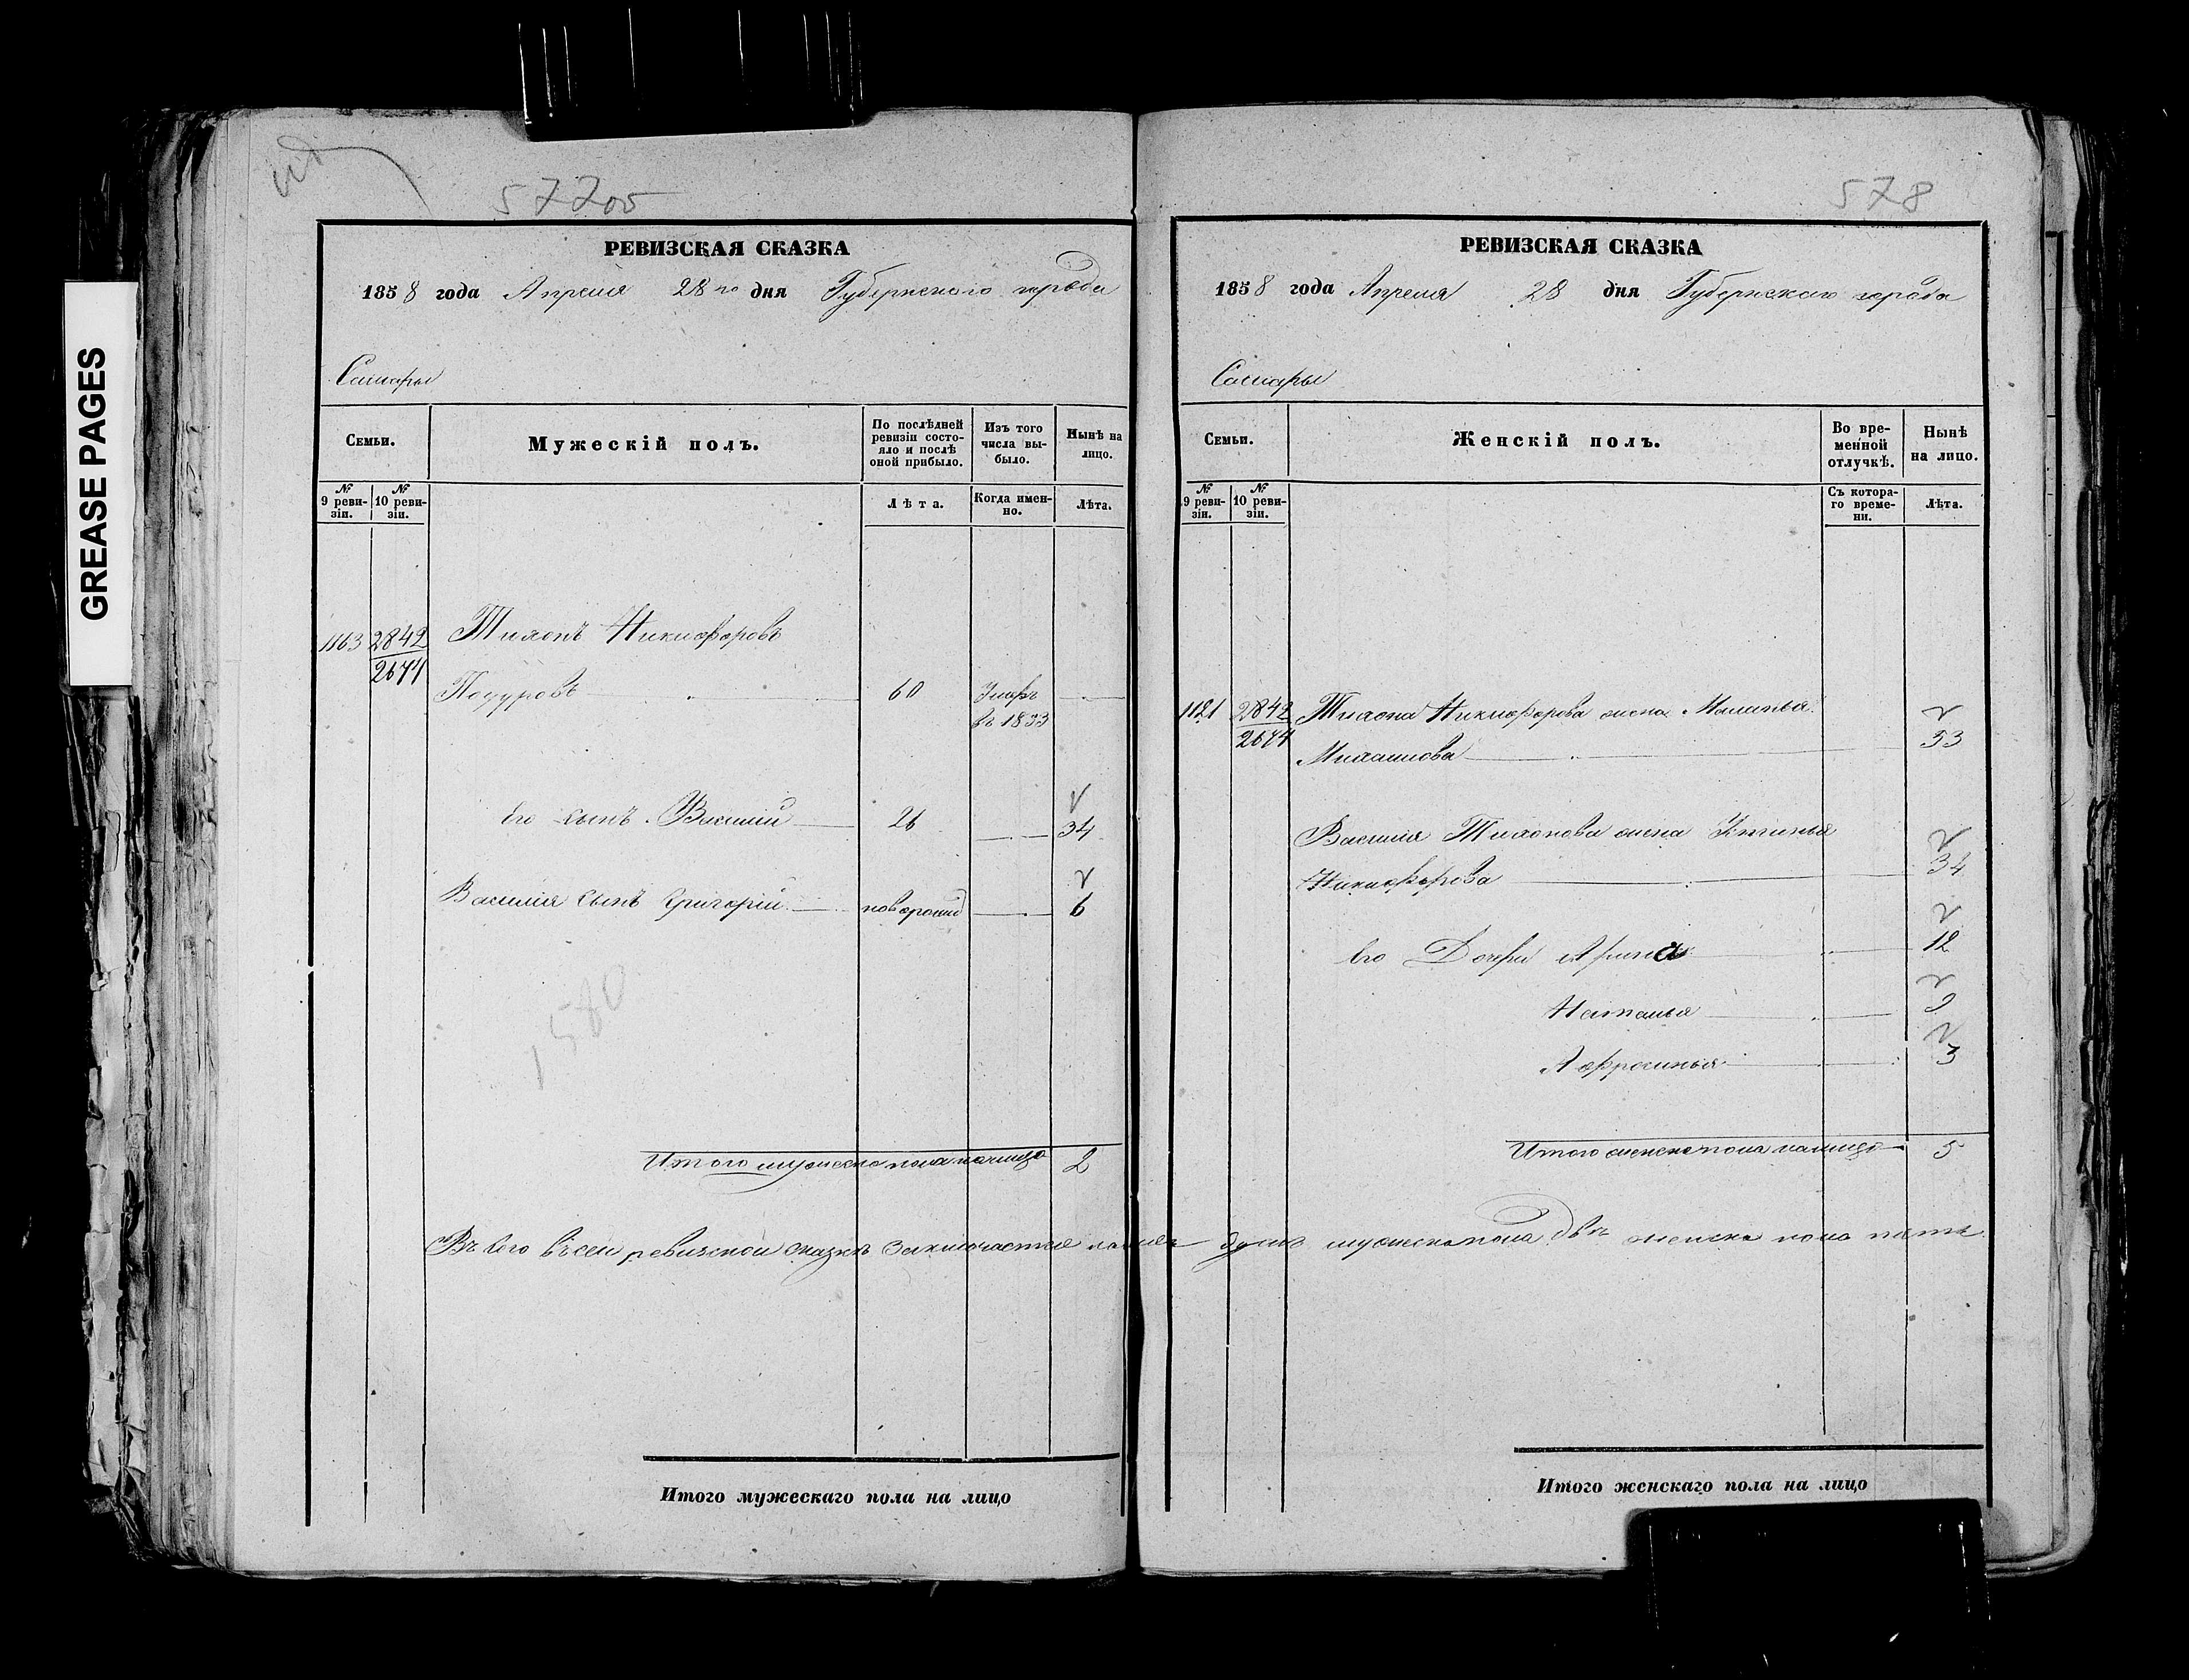 GREASE PAGES
577об
РЕВИЗСКАЯ СКАЗКА
1858 года Апреля 28го дня Губернскаго города
Самары
Семьи.
Мужескій полъ.
По послѣдней ревизіи состояло и послѣ оной прибыло.
Изъ того числа выбыло.
Нынѣ на лицо.
№ 9 ревизіи.
№ 10 ревизіи.
Лѣта.
Когда именно.
Лѣта.
1163 2842 Тихонъ Никифоровъ
2674
60 Умеръ
въ 1833
его сынъ Василий 26 34
Василия сынъ Григорий новорожд 6
1580
Итого мужеска пола налицо 2
Въ сей ревизской сказкѣ заключается налицо душъ мужеска пола двѣ женска пола пять
Итого мужескаго пола на лицо
578
РЕВИЗСКАЯ СКАЗКА
1858 года Апреля 28 дня Губернскаго города
Самары
Семьи.
Женскій полъ.
Во временной отлучкѣ.
Нынѣ на лицо.
№ 9 ревизіи.
№ 10 ревизіи.
Съ котораго времени.
Лѣта.
1121 2842 Тихона Никифорова жена Маланья
2674 Михаилова 53
Василия Тихонова жена Устинья
Никифорова 34
его Дочери Арина 12
Наталья 9
Афросинья 3
Итого женска пола налицо 5
Итого женскаго пола на лицо